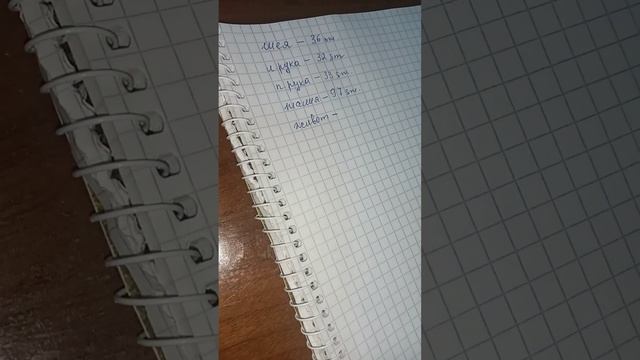 шея – 36 см
л рука – 32 см
п рука – 33 см
талия – 97 см.
живот –